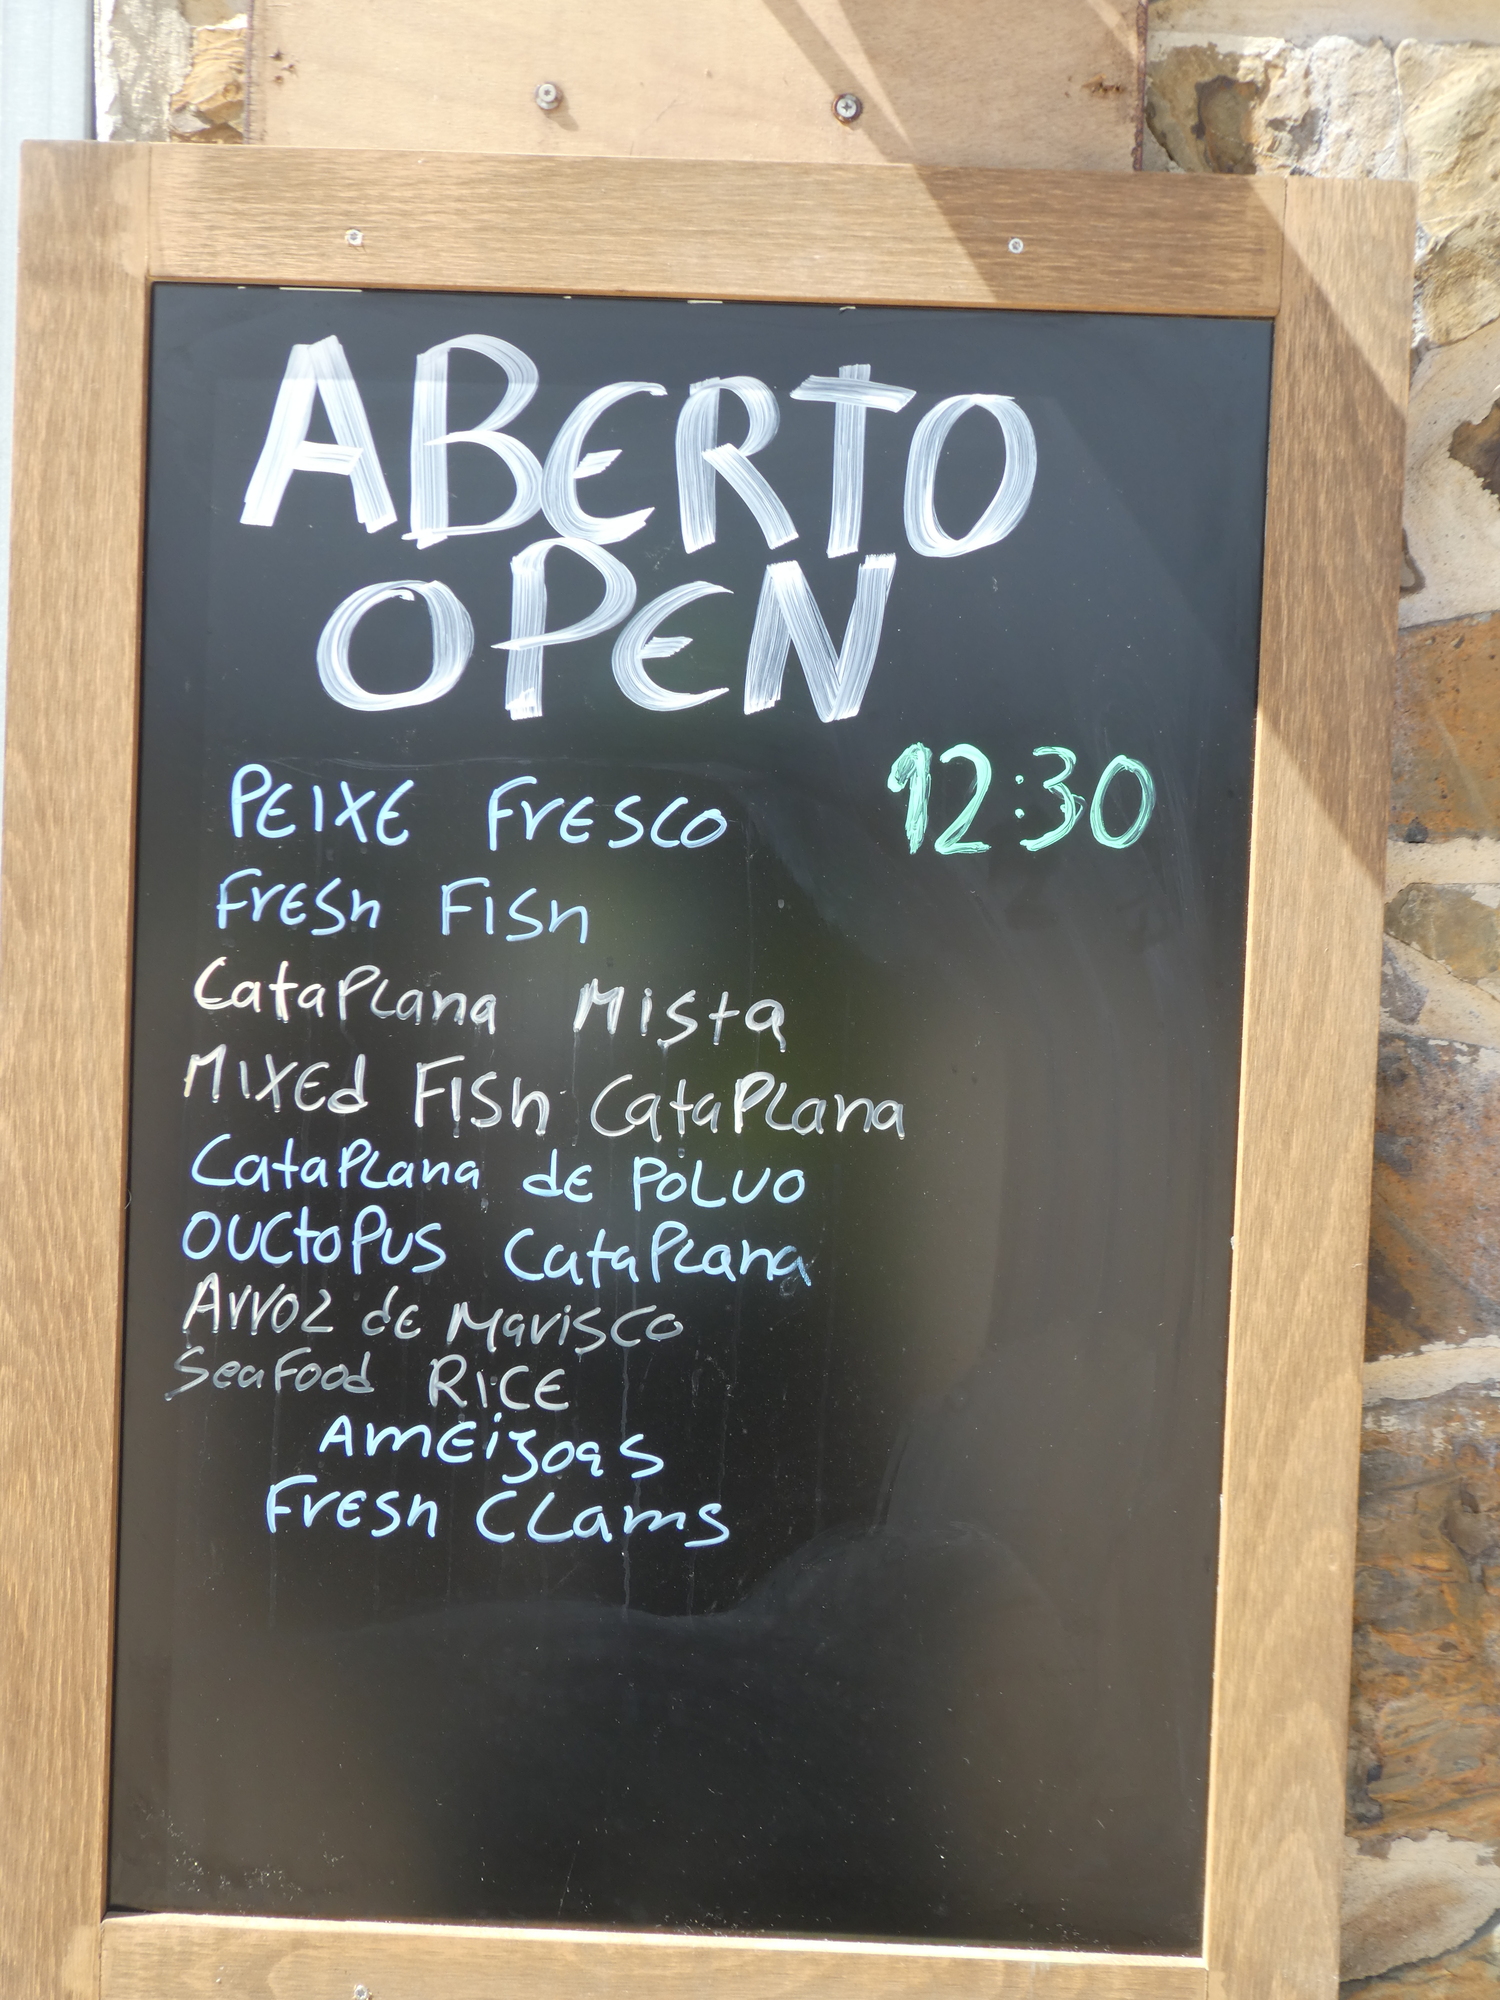 ABERTO
OPEN
12:30
PEIXE FrESCO
FrESh FISh
CataPLana Mista
MIXEd FISh CataPLana
CataPLana dE POLVO
OUCtoPUS CataPLana
Arroz dE MariSCo
SeaFood RiCE
AmEijoas
FrESh CLamS